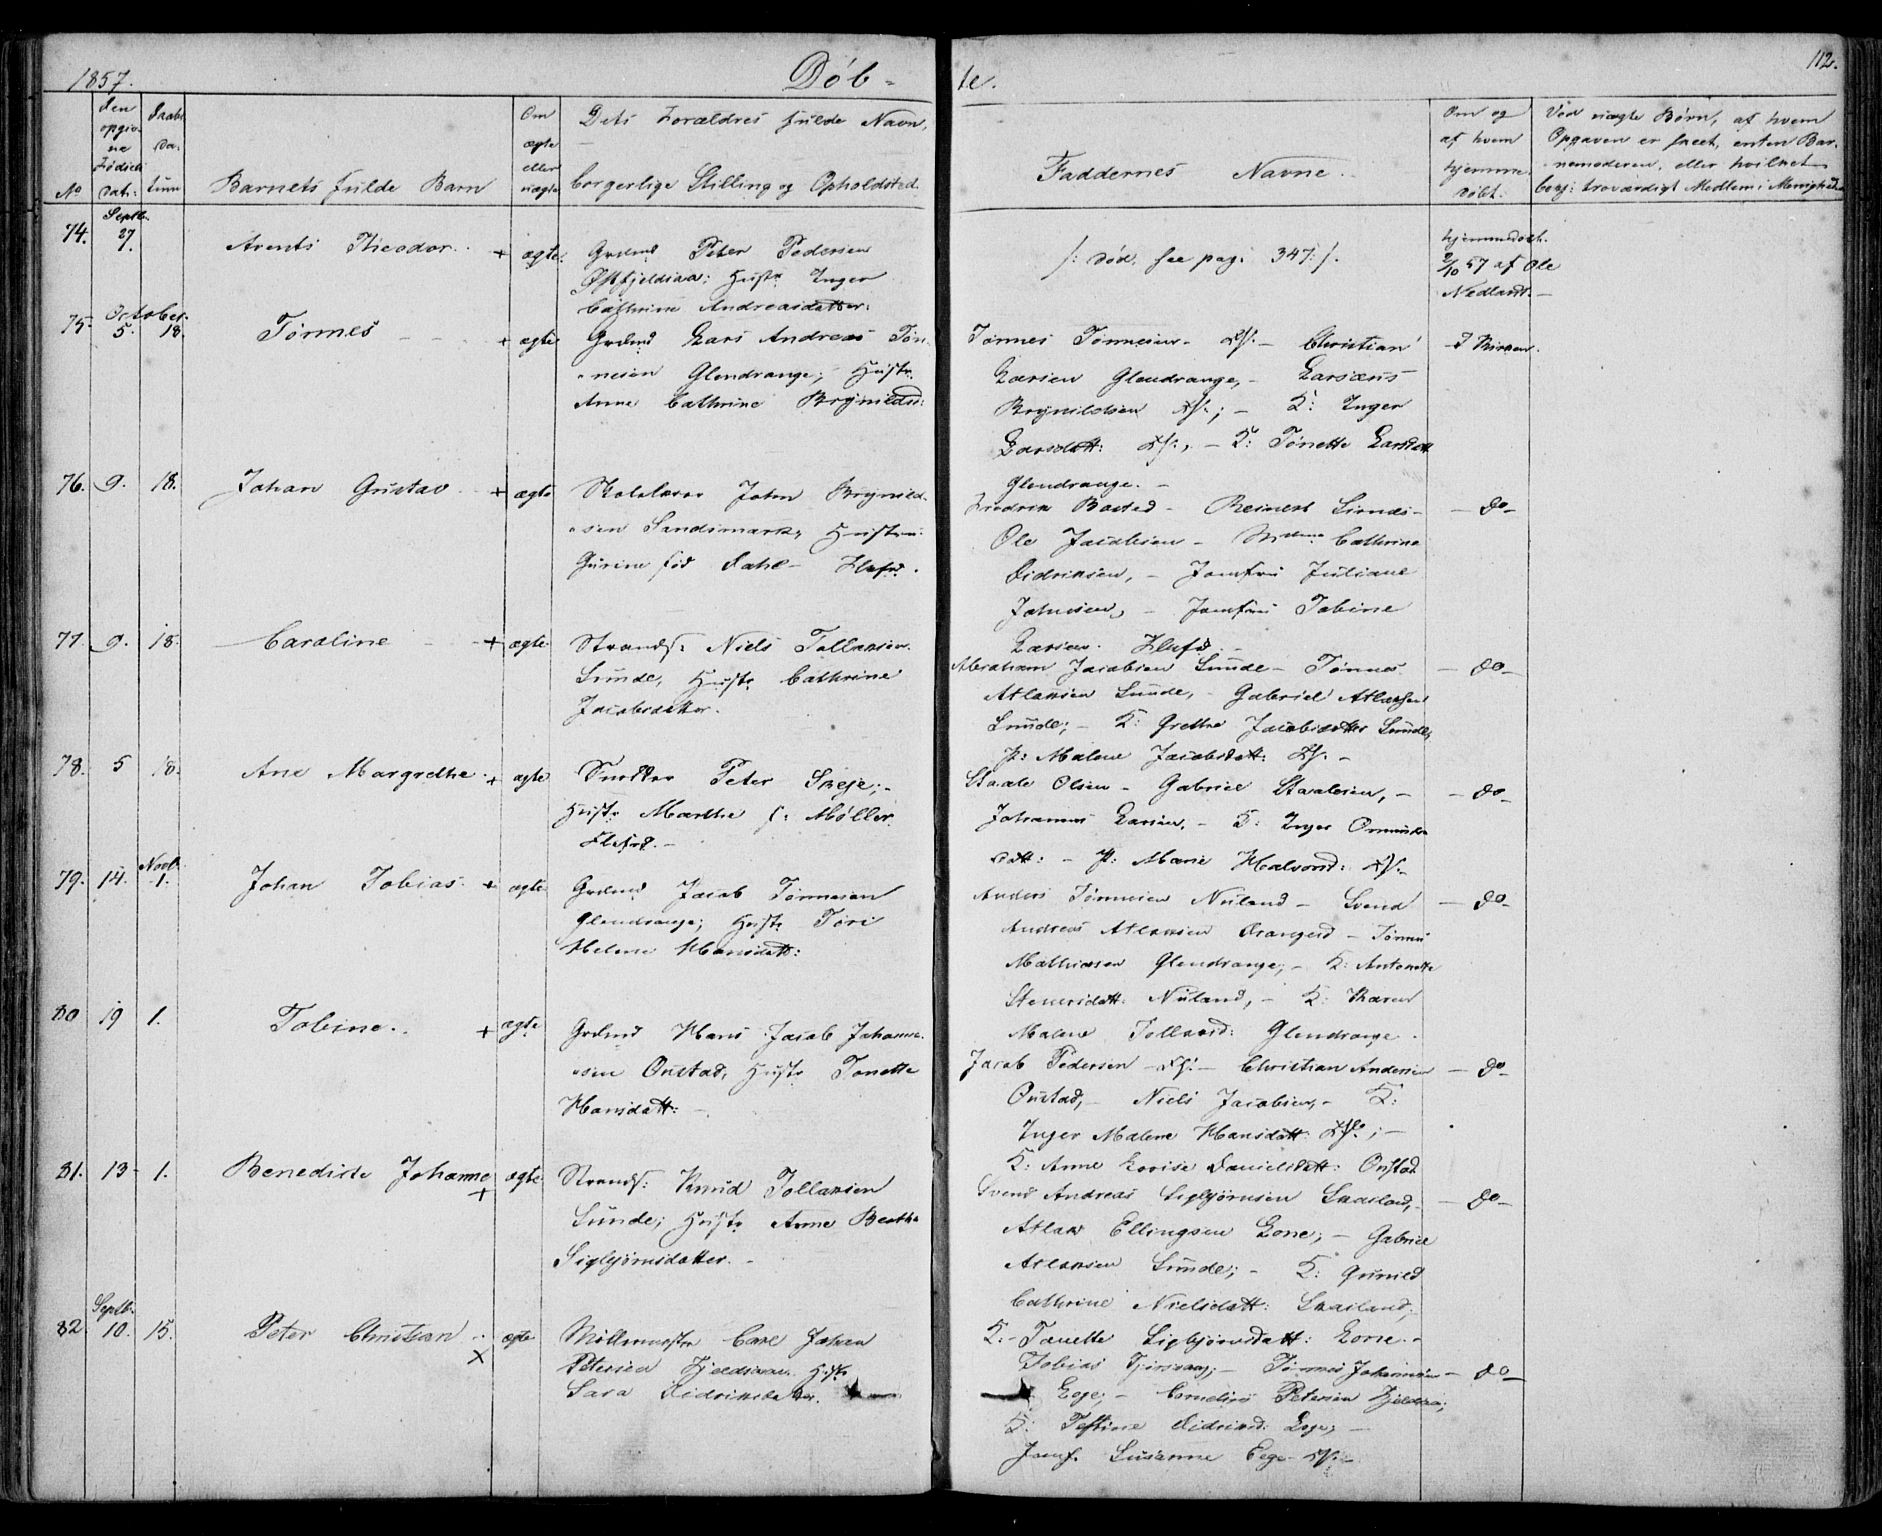 1857.
Døb-
te.
112.
No
Den
opgiv-
ne
Fødsels
Dat:
Daabs
Da-
tum
Barnets fulde Navn
Om
ægte
eller
uægte
Dets Forældres fulde Navn,
borgerlige Stilling og Opholdsted.
Faddernes Navne.
Om og
af hvem
hjemme-
døbt.
Ved uægte Børn, af hvem
Opgaven er skeet, enten Bar-
nemoderen, eller hvilket
troværdigt Medlem i Menighed
74.
Septb.
27.
Arents Theodor
+ ægte.
Grdmd Peter Pedersen
Hustr Inger
Cathrine Andreasdatter.
/: død. see pag: 347 :/.
hjemmedøbt.
2/10 57 af Ole
Nedland.
75.
October
5. 18.
Tønnes
+ ægte
Grdmd Lars Andreas Tøn-
nesen Glendrange; Hustr.
Anne Cathrine Brynildsd:
Tønnes Tønnesen - Christian
Larsen Glendrange, -
Brynildsen - K: Inger
Larsdatt: - K: Tønette Larsdatt
Glendrange. -
I Kirken.
76. 9. 18.
Johan Gustav
+ ægte
John Brynild-
sen Sandsmark, Hustru
Gurine fød Dahl -
Fredrik Bosted - Reinert
Ole Jacobsen - Cathrine
Didriksen, - Jomfru Juliane
Johnsen, - Jomfru Tobine
Larsen.
- do -
77. 9. 18.
Caroline
+ ægte
Strands: Niels Tollaksen
Sunde, Hustr Cathrine
Jacobsdatter.
Abraham Jacobsen Sunde - Tønnes
Atlaksen Sunde, - Gabriel Atlaksen
Sunde; - K: Grethe Jacobsdatter Sunde,
P: Malene Jacobsdatt:
- do -
78. 5 18.
Ane Margrethe
+ ægte
Snedker Peter Skeje; -
Hustr Marthe f: Møller
Staale Olsen - Gabriel Staalesen, -
Johannes Larsen, - K: Inger
datt: - P: Marie Halvorsd:
- do -
79. 14.
Novb.
1.
Johan Tobias.
+ ægte
Grdmd Jacob Tønnesen
Glendrange; Hustr Tori
Helene Hansdatt:
Anders Tønnesen Nuland - Svend
Andreas Atlaksen Drangeid - Tønnes
Mathiasen Glendrange; - K: Antonette
Nuland, - K: Karen
Malene Tollaksd: Glendrange.
- do -
80 19 1.
Tobine.
+ ægte
Grdmd Hans Jacob Johanne-
sen Onstad, Hustr Tonette
Hansdatt: -
Jacob Pedersen - Christian Andersen
Onstad, - Niels Jacobsen, - K:
Inger Malene Hansdatt:
K: Anne Lovise Danielsdatt: Onstad
- do -
81. 13 1.
Benedicte Johanne
+ ægte
Strands: Knud Tollaksen
Sunde; Hustr Anne Berthe
Sigbjørnsdatter. -
Svend Andreas Sigbjørnsen
Atlak Ellingsen Lone; - Gabriel
Atlaksen Sunde; - K: Gunild
Cathrine Nielsdatt:
K: Tønette Sigbjørnsdatt: Lone. -
- do -
82.
Septb.
10. 15.
Peter Christian
x ægte
Møllemester Carl Johan
Petersen Hustr
Sara Didriksdatter.
Tobias - Tønnes Johannesen
Eege; - Cornelius Petersen
K: Didriksd: Eege; -
Jomf. Susanne Eege
- do -